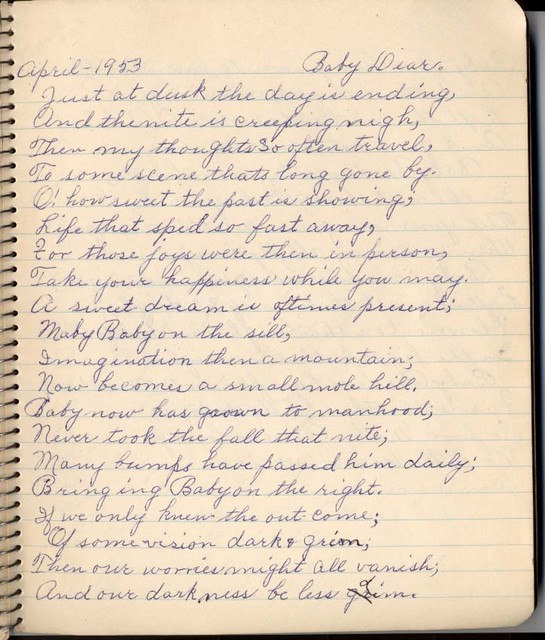 April-1953 Baby Dear.
Just at dusk the day is ending,
And the nite is creeping nigh,
Then my thoughts so often travel,
To some scene thats long gone by.
O! how sweet the past is showing,
Life that sped so fast away,
For those joys were then in person,
Take your happiness while you may.
A sweet dream is oftimes present;
Maby Baby on the sill,
Imagination then a mountain;
Now becomes a small mole hill.
Baby now has grown to manhood;
Never took the fall that nite;
Many bumps have passed him daily;
Bringing Baby on the right.
If we only knew the out come;
Of some vision dark &
Then our worries might all vanish;
And our darkness be less grim.